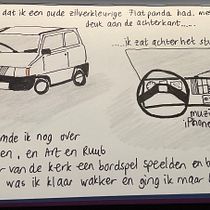 dat ik een oude zilverkleurige Fiat panda had. me
deuk aan de achterkant...
....ik zat achter het stu
muzi
iPhone
mde ik nog over
en, en Art en Ruub
r van de kerk een bordspel speelden en b
was ik klaar wakker en ging ik maar